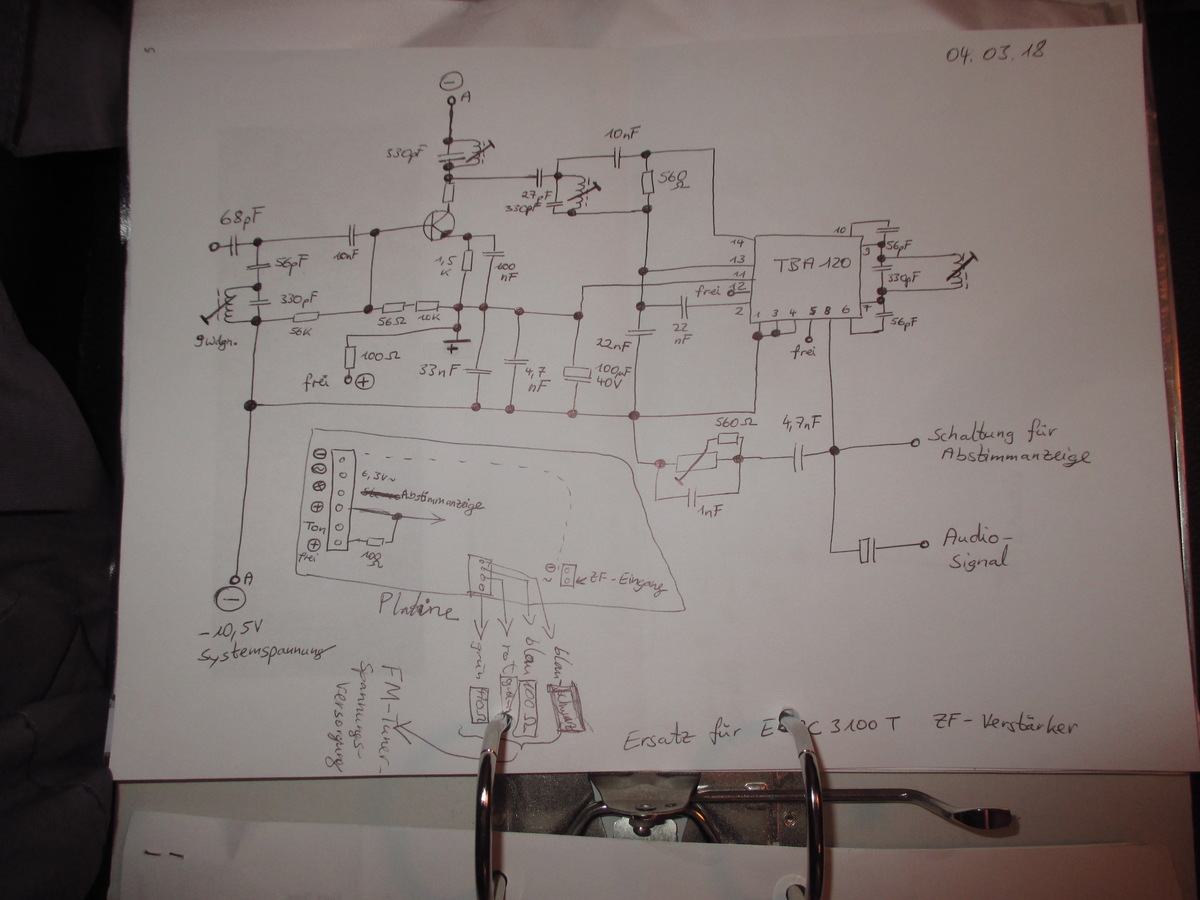 5
04.03.18
A
330pF
10nF
27pF
330pF
560
Ω
68pF
56pF
10nF
1,5
K
100
nF
330pF
9 Wdgn.
56K
56Ω
10K
100Ω
frei
33nF
4,7
nF
100µF
40V
22nF
22
nF
frei
14
13
11
12
2
TBA 120
10
9
7
1
3
4
5
8
6
frei
56pF
330pF
56pF
560Ω
4,7nF
1nF
Schaltung für
Abstimmanzeige
Audio-
Signal
6,3V~
Abstimmanzeige
Ton
frei
100
Ω
ZF-Eingang
Platine
A
-10,5V
Systemspannung
grün
rot
blau
blau
100Ω
FM-Tuner-
Spannungs-
Versorgung
Ersatz für
C 3100 T ZF-Verstärker